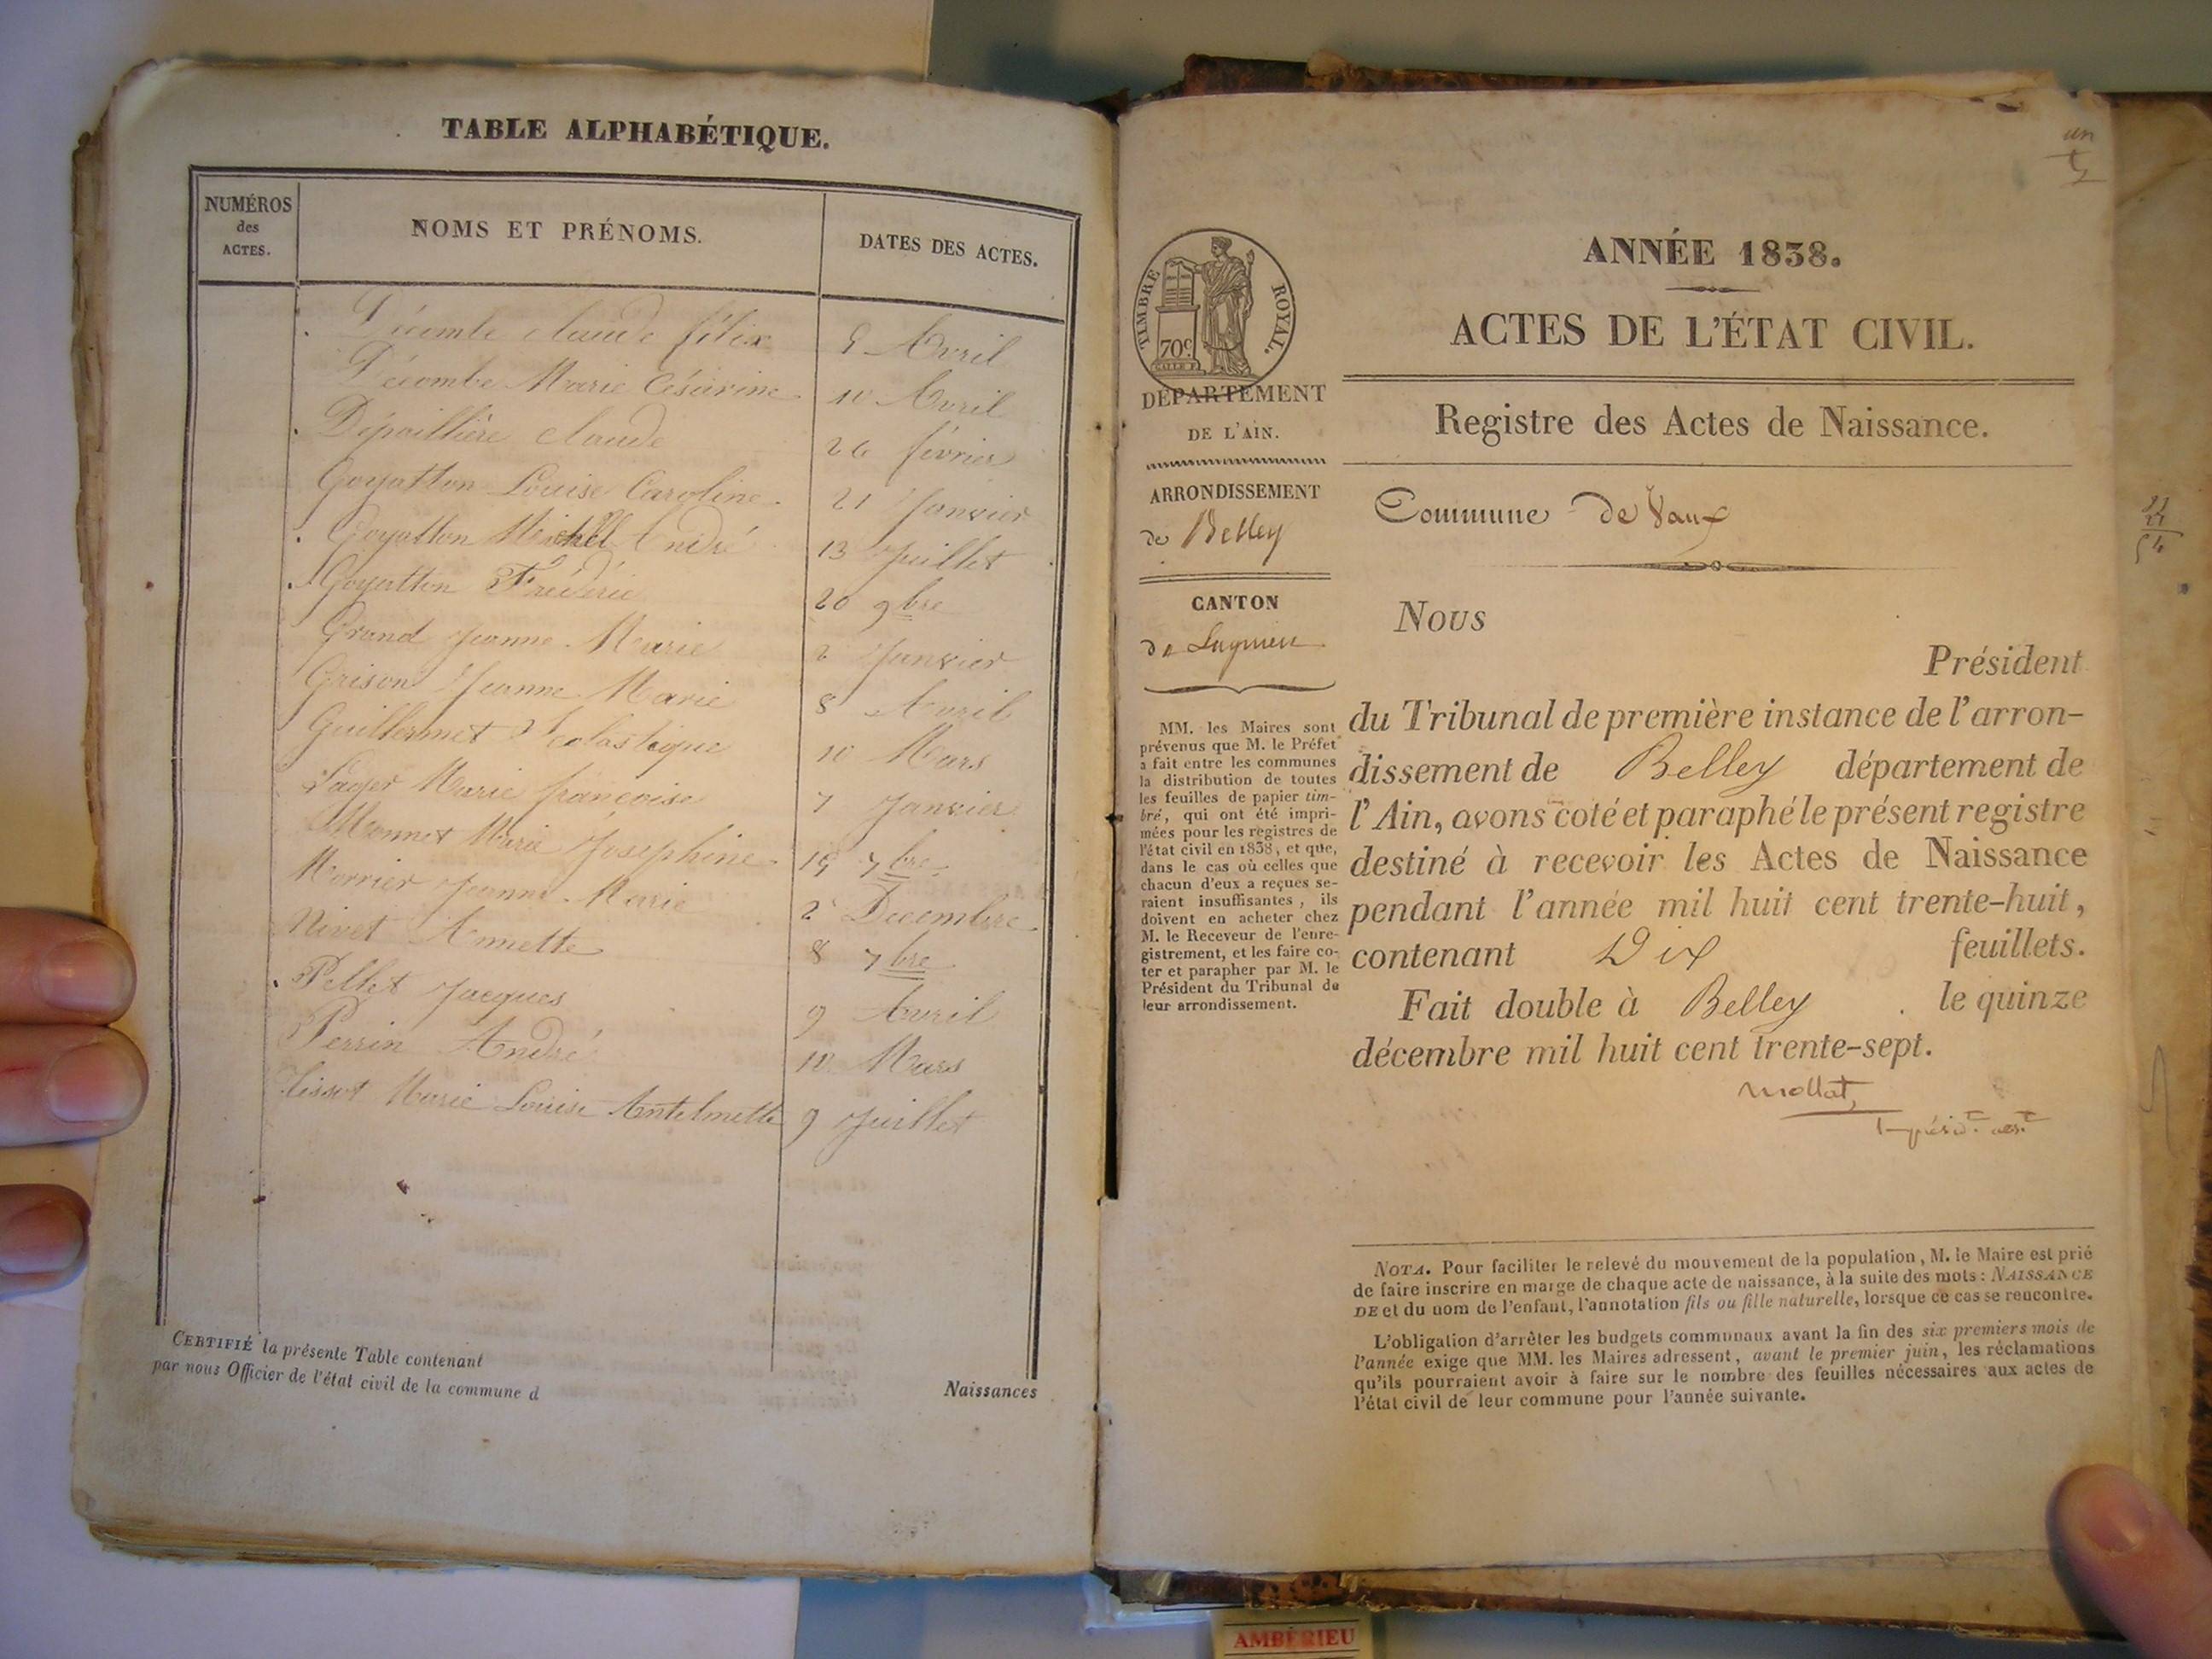 TABLE ALPHABÉTIQUE.
NUMÉROS
des
ACTES.
NOMS ET PRÉNOMS.
DATES DES ACTES.
Décombe claude félix 9 Avril
Décombe Marie Césarine 10 Avril
Dépaillière claude 26 février
Goyatton Louise Caroline 21 Janvier
Goyatton Michel André 13 Juillet
Goyatton Fréderic 20 9bre
Grand Jeanne Marie 2 Janvier
Grison Jeanne Marie 8 Avril
Guillermet Scolastique 10 Mars
Marie françoise 7 Janvier
Monnet Marie Josephine 19 7bre
Morrier Jeanne Marie 2 Decembre
Nivet Annette 8 7bre
Pellet Jacques 9 Avril
Perrin André 10 Mars
Tissot Marie Louise Antelmette 9 Juillet
CERTIFIÉ la présente Table contenant
par nous Officier de l'état civil de la commune d
Naissances
un
TIMBRE ROYAL.
70c
DÉPARTEMENT
DE L'AIN.
ARRONDISSEMENT
de Belley
CANTON
de Lagnieu
MM. les Maires sont
prévenus que M. le Préfet
a fait entre les communes
la distribution de toutes
les feuilles de papier tim-
bré, qui ont été impri-
mées pour les registres de
l'état civil en 1838, et que,
dans le cas où celles que
chacun d'eux a reçues se-
raient insuffisantes, ils
doivent en acheter chez
M. le Receveur de l'enre-
gistrement, et les faire co-
ter et parapher par M. le
Président du Tribunal de
leur arrondissement.
ANNÉE 1838.
ACTES DE L'ÉTAT CIVIL.
Registre des Actes de Naissance.
Commune de Vaux
Nous
Président
du Tribunal de première instance de l'arron-
dissement de Belley département de
l'Ain, avons coté et paraphé le présent registre
destiné à recevoir les Actes de Naissance
pendant l'année mil huit cent trente-huit,
contenant Dix feuillets.
Fait double à Belley . le quinze
décembre mil huit cent trente-sept.
Mollat,
NOTA. Pour faciliter le relevé du mouvement de la population, M. le Maire est prié
de faire inscrire en marge de chaque acte de naissance, à la suite des mots : NAISSANCE
DE et du nom de l'enfant, l'annotation fils ou fille naturelle, lorsque ce cas se rencontre.
L'obligation d'arrêter les budgets communaux avant la fin des six premiers mois de
l'année exige que MM. les Maires adressent, avant le premier juin, les réclamations
qu'ils pourraient avoir à faire sur le nombre des feuilles nécessaires aux actes de
l'état civil de leur commune pour l'année suivante.
AMBÉRIEU